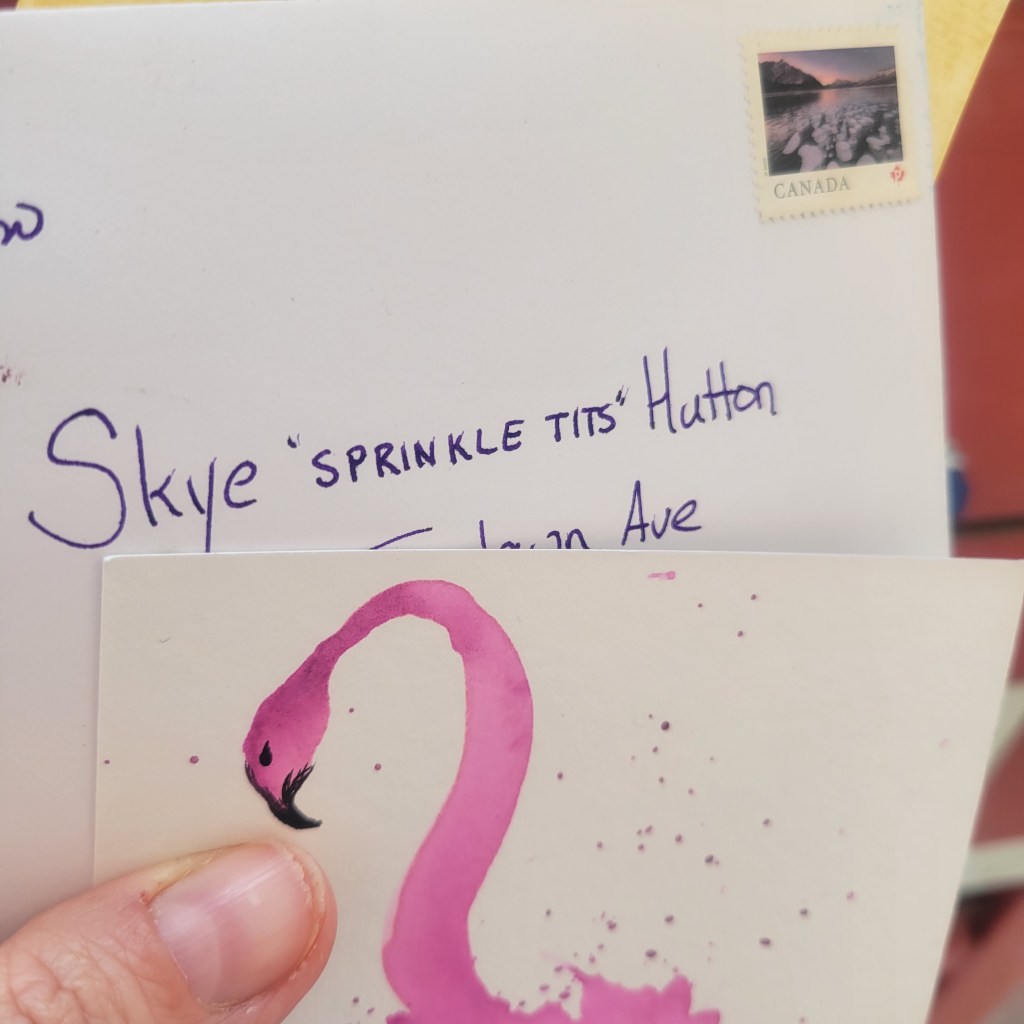 CANADA
Skye "SPRINKLE TITS" Hutton
Ave